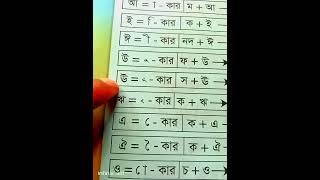 আ = া - কার ম + আ
ই = ি - কার ক + ই
ঈ = ী - কার নদ + ঈ
উ = ু - কার ফ + উ
ঊ = ূ - কার স + ঊ
ঋ = ৃ - কার ক + ঋ
এ = ে - কার ক + এ
ঐ = ৈ - কার ক + ঐ
ও = ো - কার চ + ও